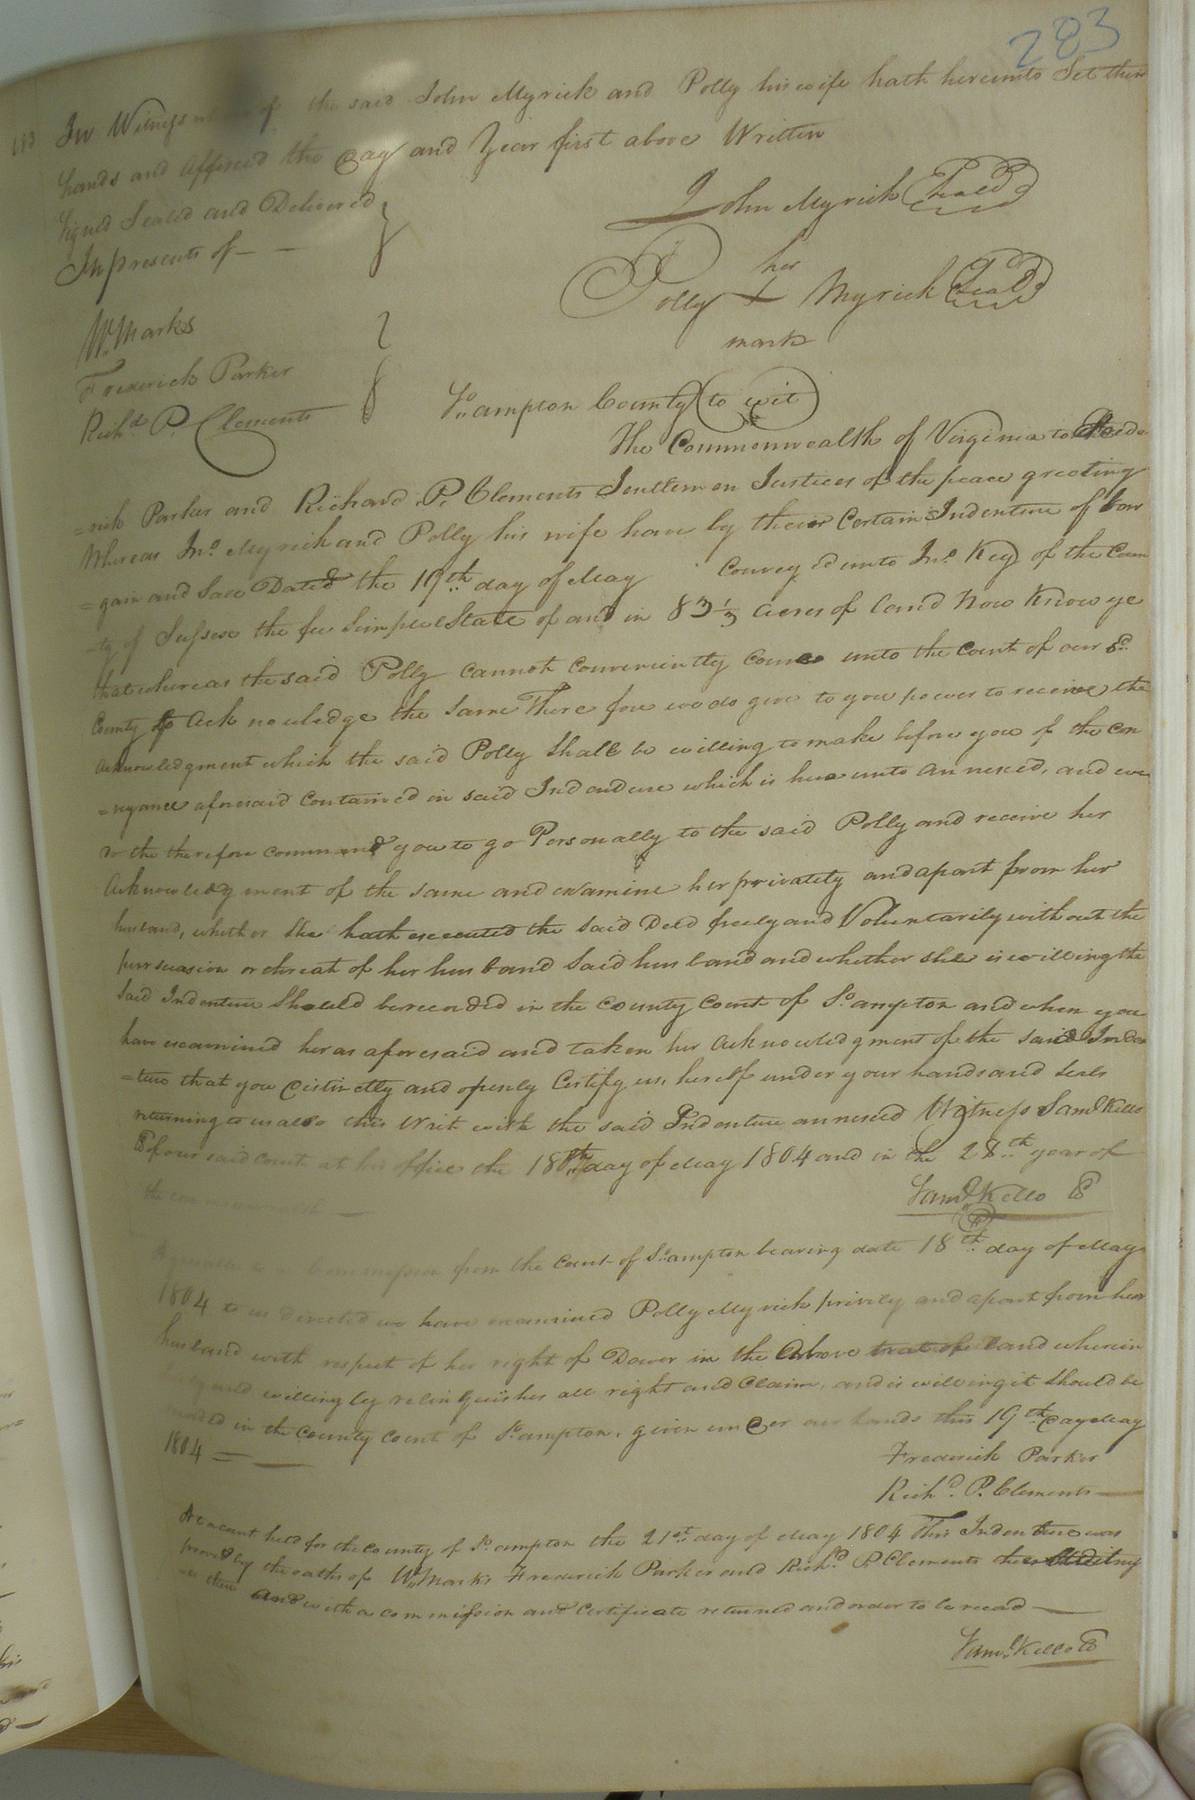 283
183
In Witness whereof the said John Myrick and Polly his wife hath hereunto Set their
hands and affixed the day and Year first above Written
Signed Sealed and Delivered
In presents of —
John Myrick Seal
her
Polly + Myrick Seal
mark
Wm. Marks
Frederick Parker
Richd. P. Clements
So.ampton County to wit
The Commonwealth of Virginia to Frede
=rick Parker and Richard P. Clements Gentlemen Justices of the peace greeting
Whereas Jno. Myrick and Polly his wife have by their Certain Indenture of bar
=gain and Sale Dated the 19th day of May Convey'd unto Jno. Key of the Coun
=ty of Sussex the fee Simple Estate of and in 83 1/3 Acres of land Now Know ye
that whereas the said Polly cannot conveniently come unto the Court of our sd.
County to Acknowledge the Same Therefore we do give to you power to receive the
acknowledgment which the said Polly Shall be willing to make before you of the con
=veyance aforesaid contained in said Indenture which is hereunto annexed, and we
do the therefore command you to go Personally to the said Polly and receive her
Acknowledgment of the same and examine her privately and apart from her
husband, whether She hath executed the said Deed freely and Voluntarily without the
persuasion or threat of her husband said husband and whether she is willing the
said Indenture Should be recorded in the County Court of So.ampton and when you
have examined her as aforesaid and taken her Acknowledgment of the said Inden
=ture that you distinctly and openly Certify us, hereof under your hands and Seals
returning to us also this Writ with the said Indenture annexed Witness Saml Kello
C of our said Court at his office the 18th day of May 1804 and in the 28th year of
the commonwealth —
Saml. Kello C
commission from the Court of So.ampton bearing date 18th day of May
1804 to us directed we have examined Polly Myrick privily and apart from her
husband with respect of her right of Dower in the Above tract of land wherein
willingly relinquishes all right and Claim, and is willing it should be
in the County Court of So.ampton, given under our hands this 19th day May
1804 = —
Frederick Parker
Richd. P. Clements —
At a court held for the County of So.ampton the 21st day of May 1804 This Indenture was
proved by the oaths of Wm. Marks Frederick Parker and Richd P Clements the
and with a commission and Certificate returned and order to be record —
Saml. Kello C